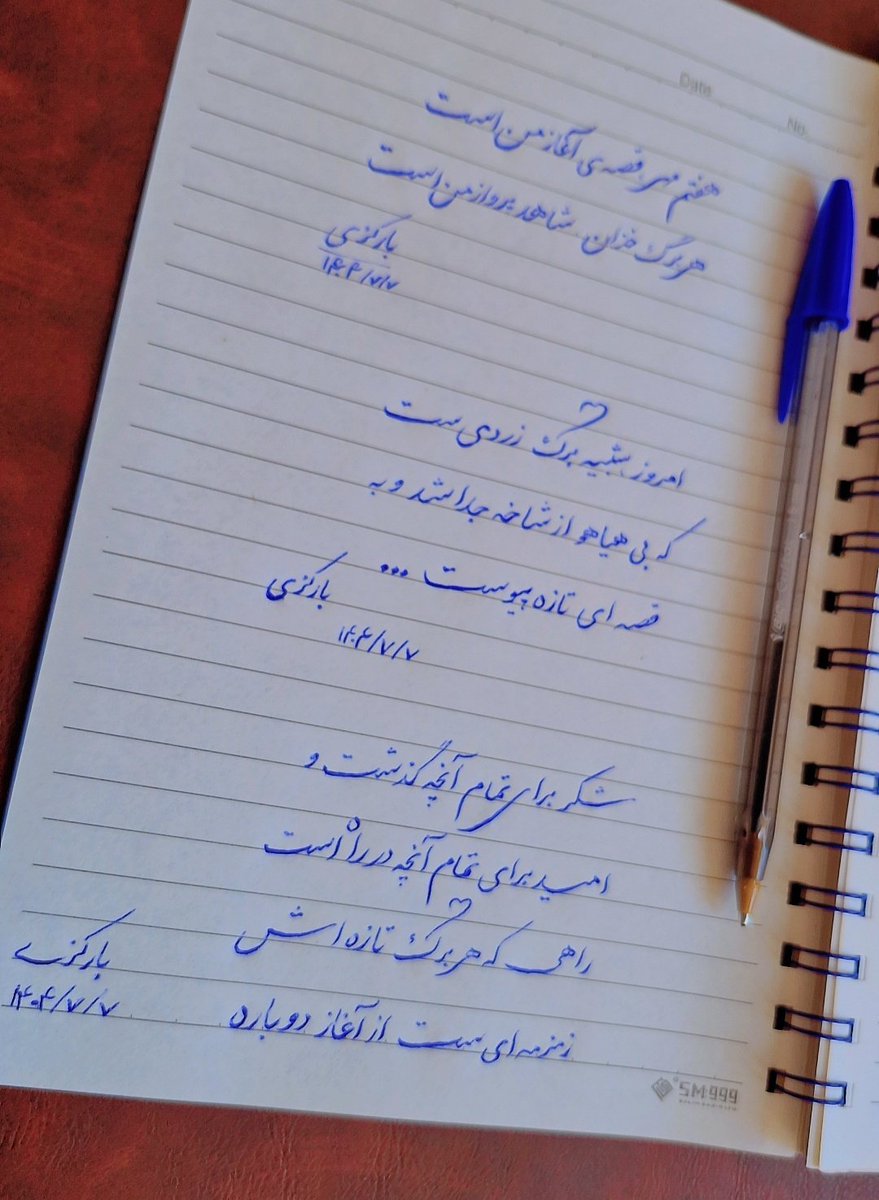 Date
No.
هفتم مهر، قصه‌ی آغاز من است
هر برگ خزان شاهد پرواز من است
بارکزی
۱۴۰۴/۷/۷
امروز شبیه برگ زردی ست
که بی هیاهو از شاخه جدا شد و به
قصه ای تازه پیوست ...
بارکزی
۱۴۰۴/۷/۷
شکر برای تمام آنچه گذشت و
امید برای تمام آنچه در راه است
راهی که هر برگ تازه اش
زمزمه ای ست از آغاز دوباره
بارکزی
۱۴۰۴/۷/۷
SM999